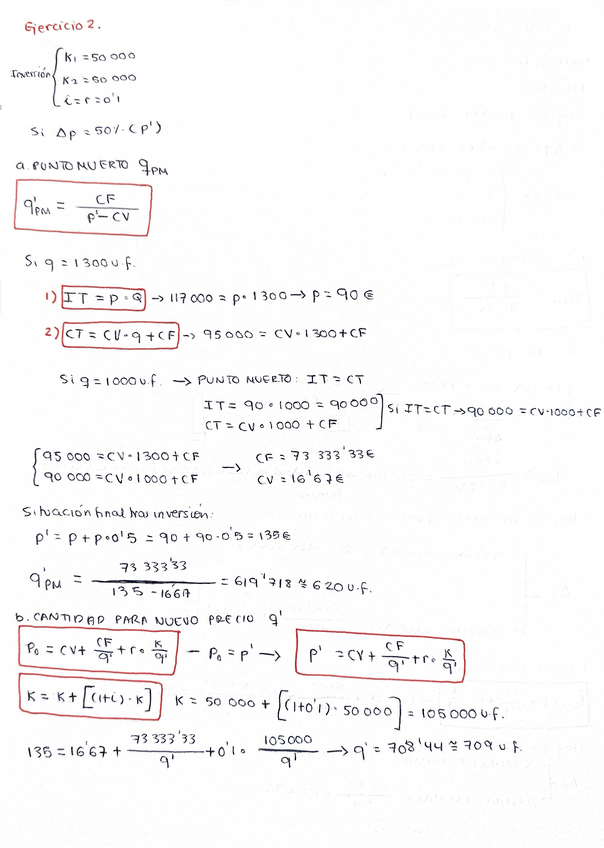 Ejercicio 2.
Inversión { K1 = 50 000
K2 = 50 000
i = r = 0'1
Si Δp = 50% (p')
a. PUNTO MUERTO qPM
q'PM = CF / p' - CV
Si q = 1300 u.f.
1) IT = p · Q → 117 000 = p · 1300 → p = 90 €
2) CT = CV · q + CF → 95 000 = CV · 1300 + CF
Si q = 1000 u.f. → PUNTO MUERTO: IT = CT
IT = 90 · 1000 = 90 000
CT = CV · 1000 + CF ] Si IT = CT → 90 000 = CV · 1000 + CF
{ 95 000 = CV · 1300 + CF → CF = 73 333'33 €
90 000 = CV · 1000 + CF CV = 16'67 €
Situación final tras inversión:
p' = p + p · 0'5 = 90 + 90 · 0'5 = 135 €
q'PM = 73 333'33 / 135 - 16'67 = 619'718 ≅ 620 u.f.
b. CANTIDAD PARA NUEVO PRECIO q'
P0 = CV + CF/q' + r · K/q' — P0 = p' → p' = CV + CF/q' + r · K/q'
K = K + [(1+i) · K] K = 50 000 + [(1+0'1) · 50 000] = 105 000 u.f.
135 = 16'67 + 73 333'33/q' + 0'1 · 105 000/q' → q' = 708'44 ≅ 709 u.f.